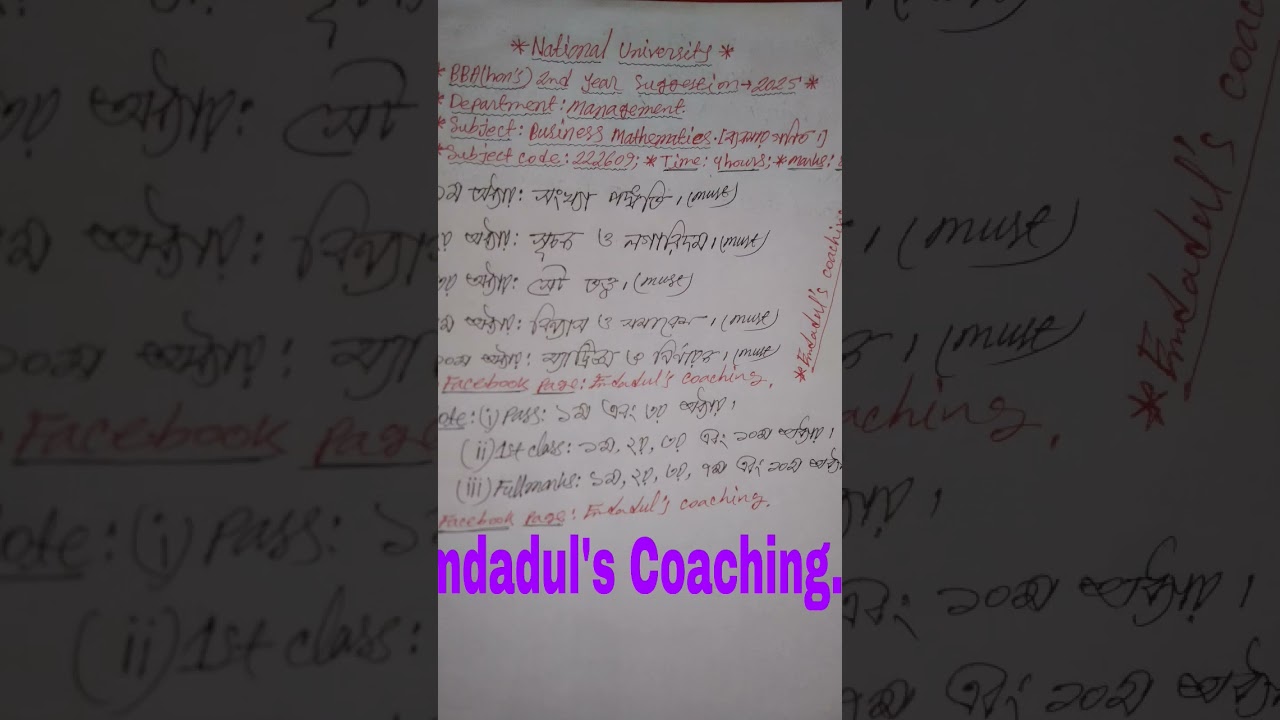 *National University*
*BBA(hon's) 2nd year suggestion→2025*
*Department: Management.
*Subject: Business Mathematics. [ব্যবসায় গণিত।]
*Subject code: 222609; *Time: 4hours; *marks: 8
১ম অধ্যায়: সংখ্যা পদ্ধতি। (must)
২য় অধ্যায়: সূচক ও লগারিদম। (must)
৩য় অধ্যায়: সেট তত্ত্ব। (must)
৭ম অধ্যায়: বিন্যাস ও সমাবেশ। (must)
১০ম অধ্যায়: ম্যাট্রিক্স ও নির্ণায়ক। (must)
*Endadul's coaching
Facebook page: Emdadul's coaching.
ote: (i) Pass: ১ম এবং ৩য় অধ্যায়।
(ii) 1st class: ১ম, ২য়, ৩য় এবং ১০ম অধ্যায়।
(iii) Fullmarks: ১ম, ২য়, ৩য়, ৭ম এবং ১০ম অধ্যায়
Facebook page: Emdadul's coaching.
mdadul's Coaching.